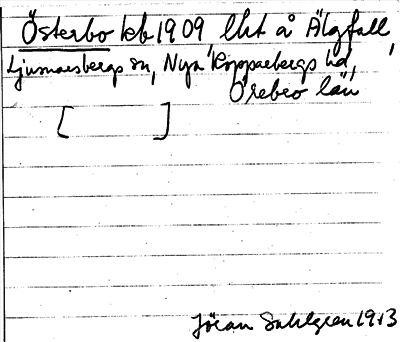 Österbo kb 1909 lht å Älgfall,
Ljusnarsbergs sn, Nya Kopparbergs hd,
Örebro län
[ ]
Jöran Sahlgren 1913